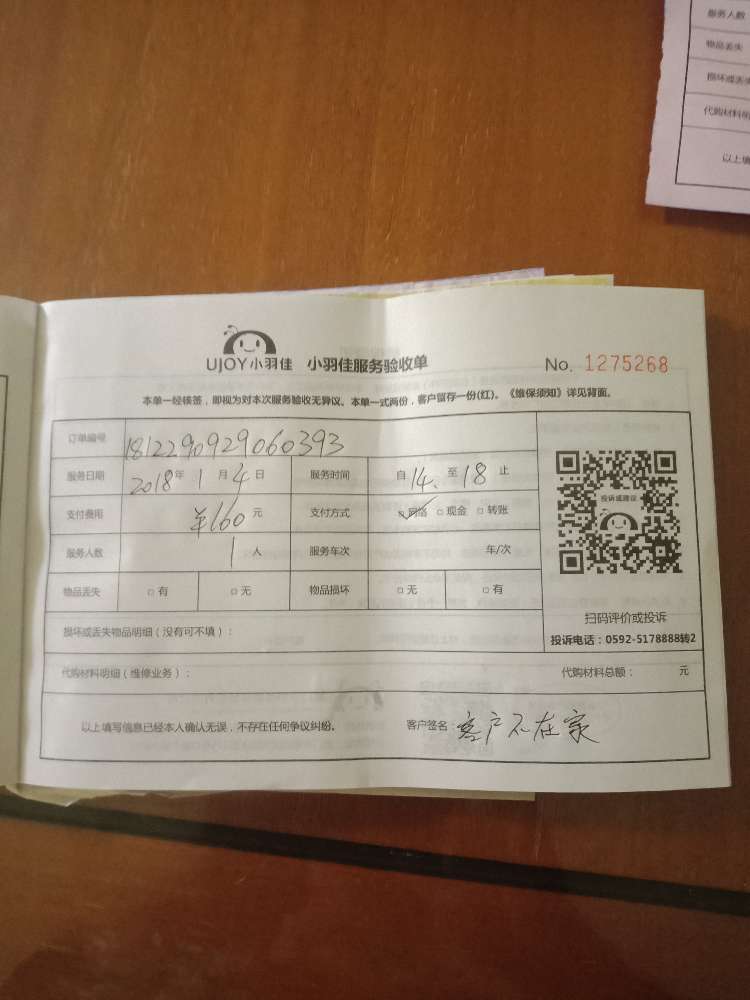 服务人数
物品丢失
损坏或丢失
代购材料明
以上填
UJOY小羽佳 小羽佳服务验收单 No. 1275268
本单一经核签，即视为对本次服务验收无异议、本单一式两份，客户留存一份(红)。《维保须知》详见背面。
订单编号 1812290929060393
服务日期 2018年 1月 4日 服务时间 自 14. 至 18 止
支付费用 ¥160 元 支付方式 ☑网络 □现金 □转账
服务人数 1 人 服务车次 车/次
物品丢失 □有 □无 物品损坏 □无 □有
投诉或建议
扫码评价或投诉
投诉电话：0592-5178888转2
损坏或丢失物品明细（没有可不填）：
代购材料明细（维修业务）： 代购材料总额： 元
以上填写信息已经本人确认无误，不存在任何争议纠纷。 客户签名：客户不在家